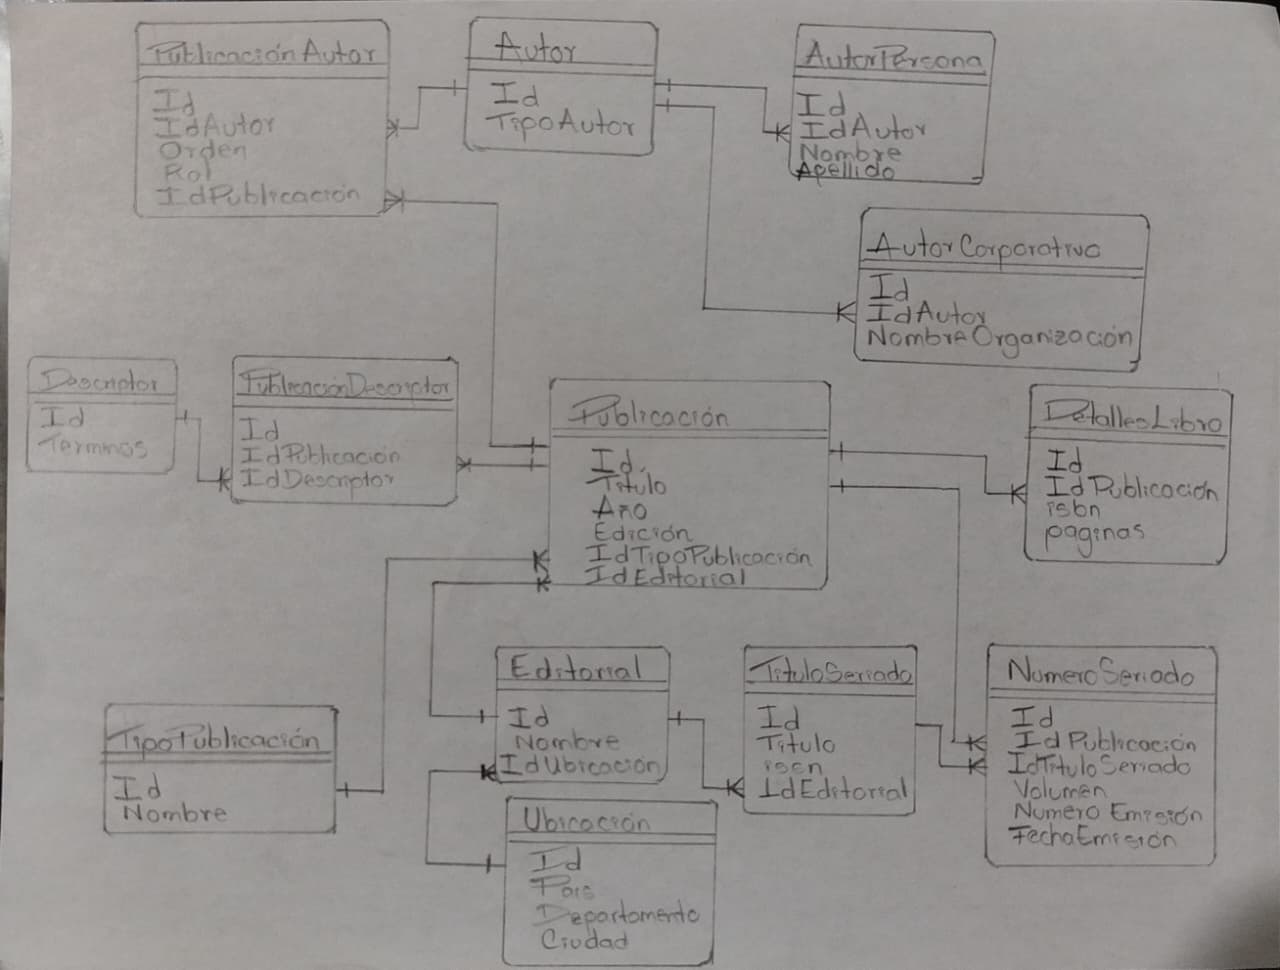 PublicaciónAutor
Id
IdAutor
Orden
Rol
IdPublicación
Autor
Id
TipoAutor
AutorPersona
Id
IdAutor
Nombre
Apellido
AutorCorporativo
Id
IdAutor
NombreOrganización
Descriptor
Id
Terminos
PublicaciónDescriptor
Id
IdPublicación
IdDescriptor
Publicación
Id
Titulo
Año
Edición
IdTipoPublicación
IdEditorial
DetallesLibro
Id
IdPublicación
isbn
paginas
TipoPublicación
Id
Nombre
Editorial
Id
Nombre
IdUbicación
TituloSeriado
Id
Titulo
issn
IdEditorial
NumeroSeriado
Id
IdPublicación
IdTituloSeriado
Volumen
Numero Emisión
FechaEmisión
Ubicación
Id
País
Departamento
Ciudad